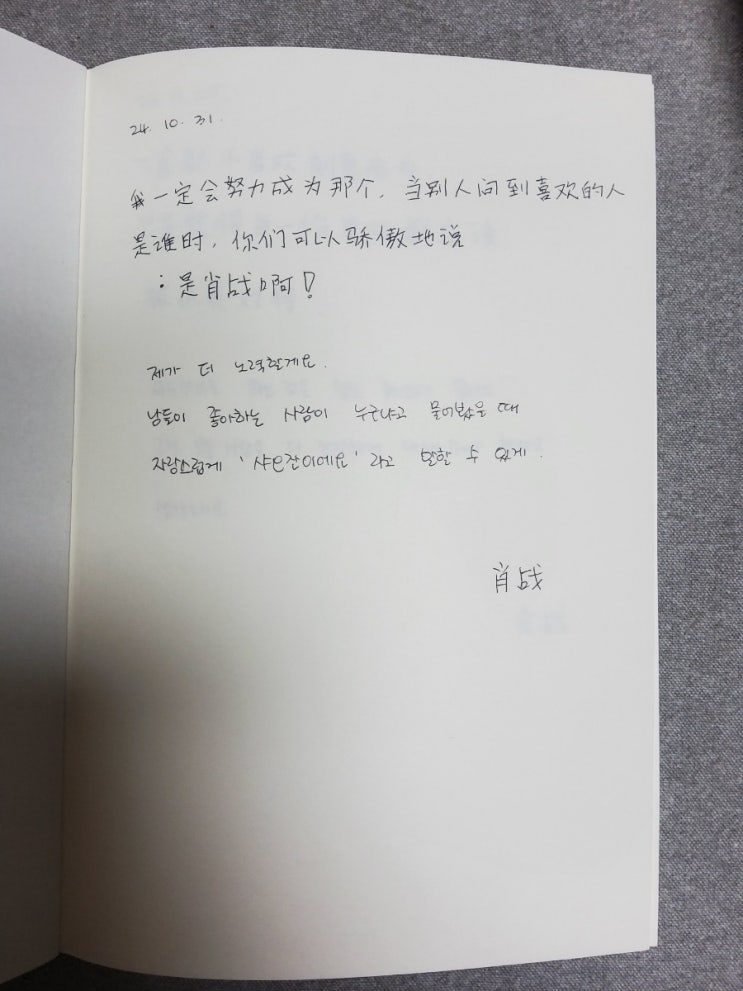 24. 10. 31.
我一定会努力成为那个，当别人问到喜欢的人
是谁时，你们可以骄傲地说
：是肖战啊！
제가 더 노력할게요.
남들이 좋아하는 사람이 누구냐고 물어봤을 때
자랑스럽게 '샤오잔이에요' 라고 말할 수 있게.
肖战